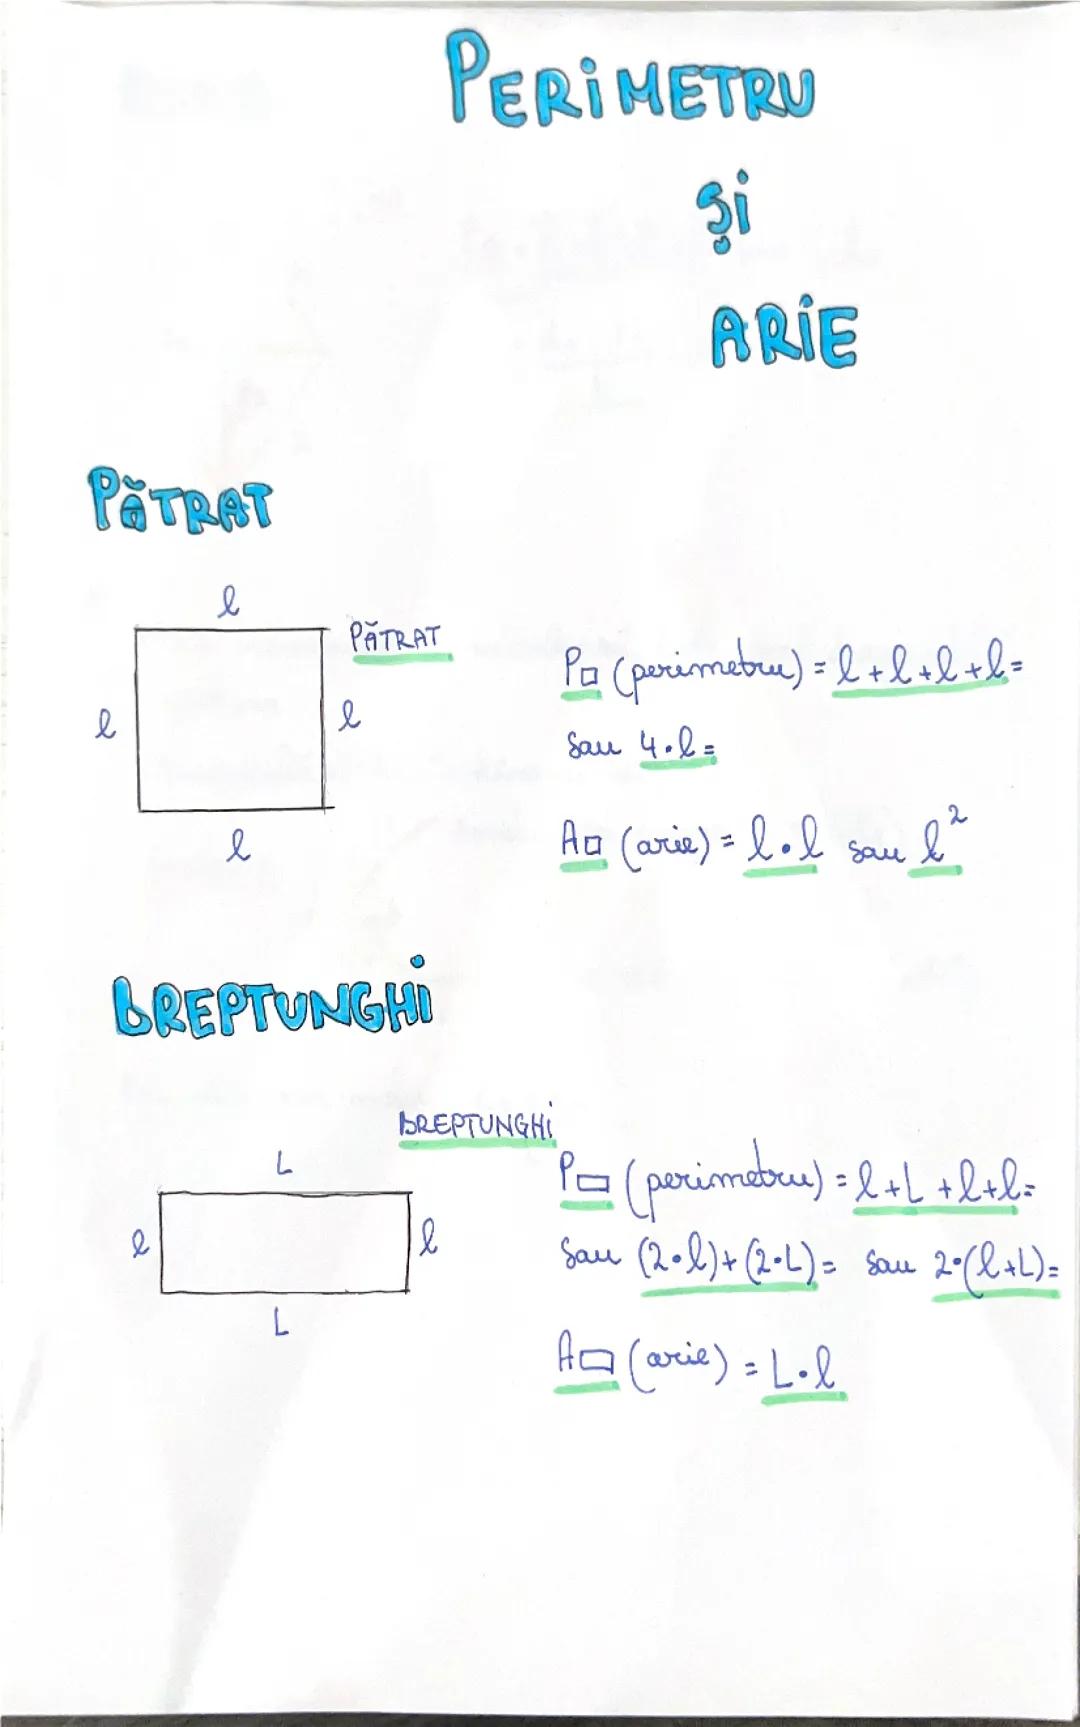 PERIMETRU
și
ARIE
PĂTRAT
l
PĂTRAT
l
l
l
P□ (perimetru) = l+l+l+l=
sau 4·l=
A□ (arie) = l·l sau l²
DREPTUNGHI
DREPTUNGHI
L
l
l
L
P▭ (perimetru) = l+L+l+l=
sau (2·l)+(2·L)= sau 2·(l+L)=
A▭ (arie) = L·l